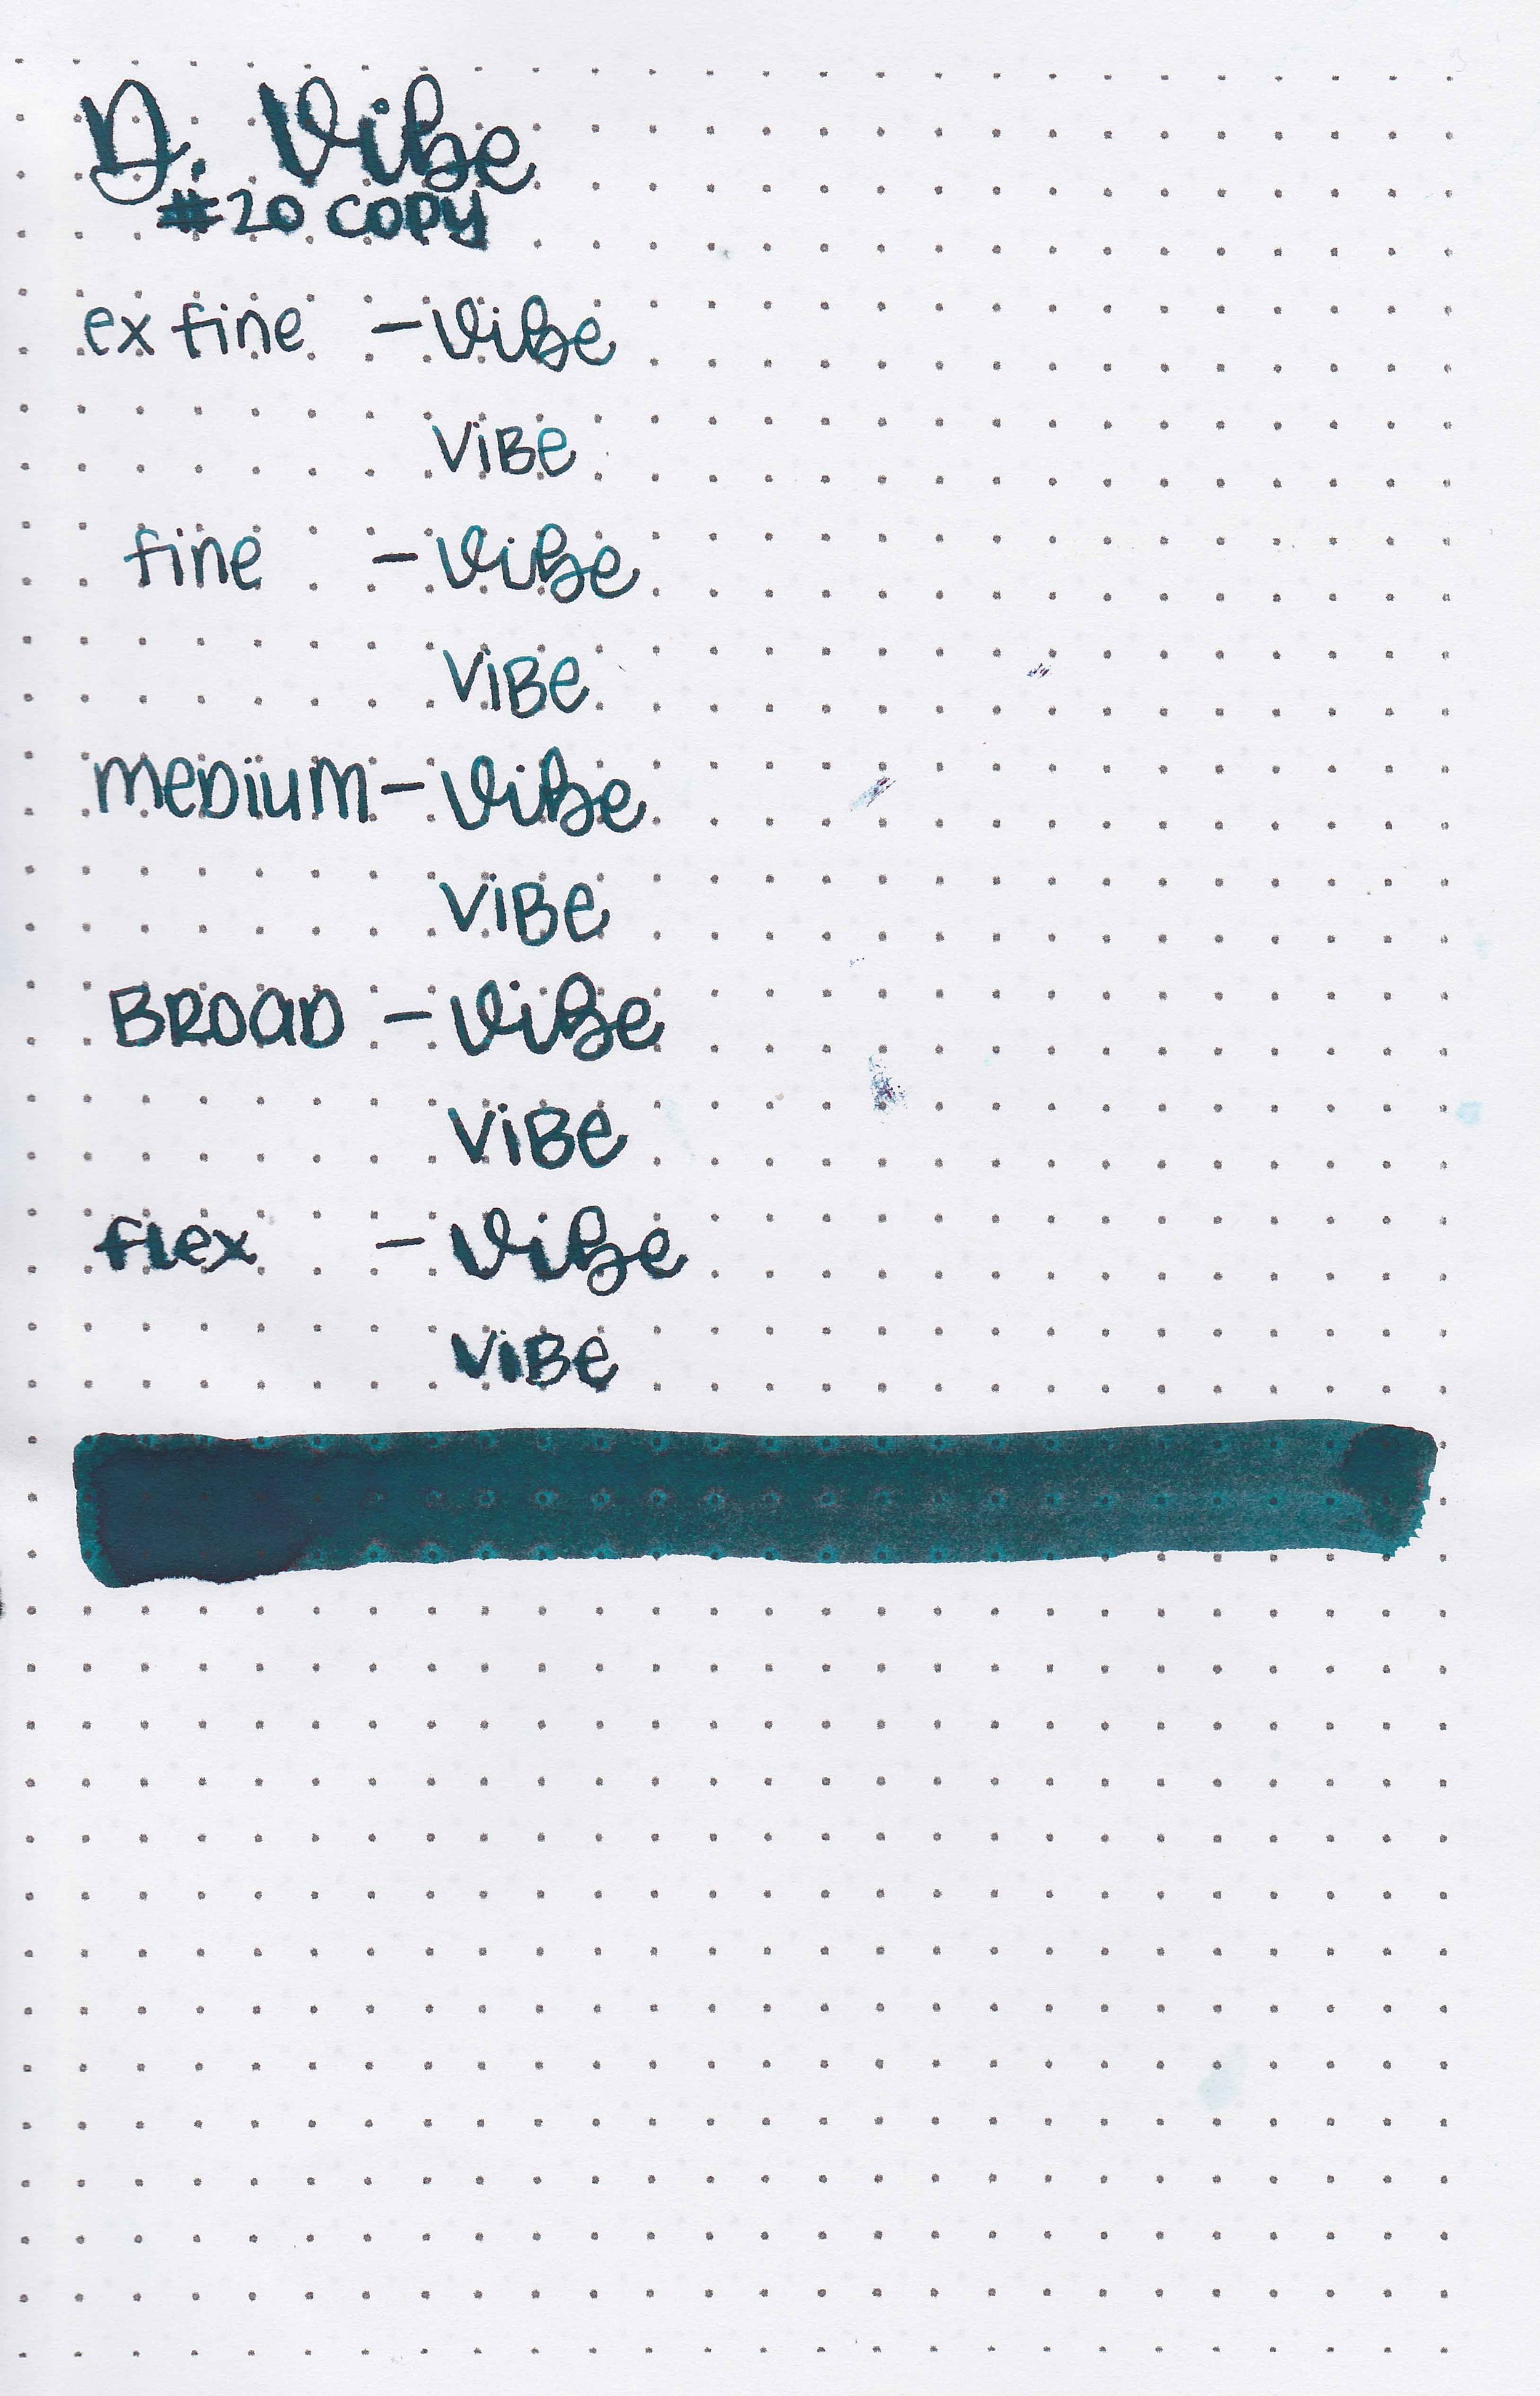 D. Vibe
#20 COPY
ex fine - Vibe
ViBe
fine - Vibe
ViBe
meDium - Vibe
ViBe
BROaD - Vibe
ViBe
flex - Vibe
ViBe